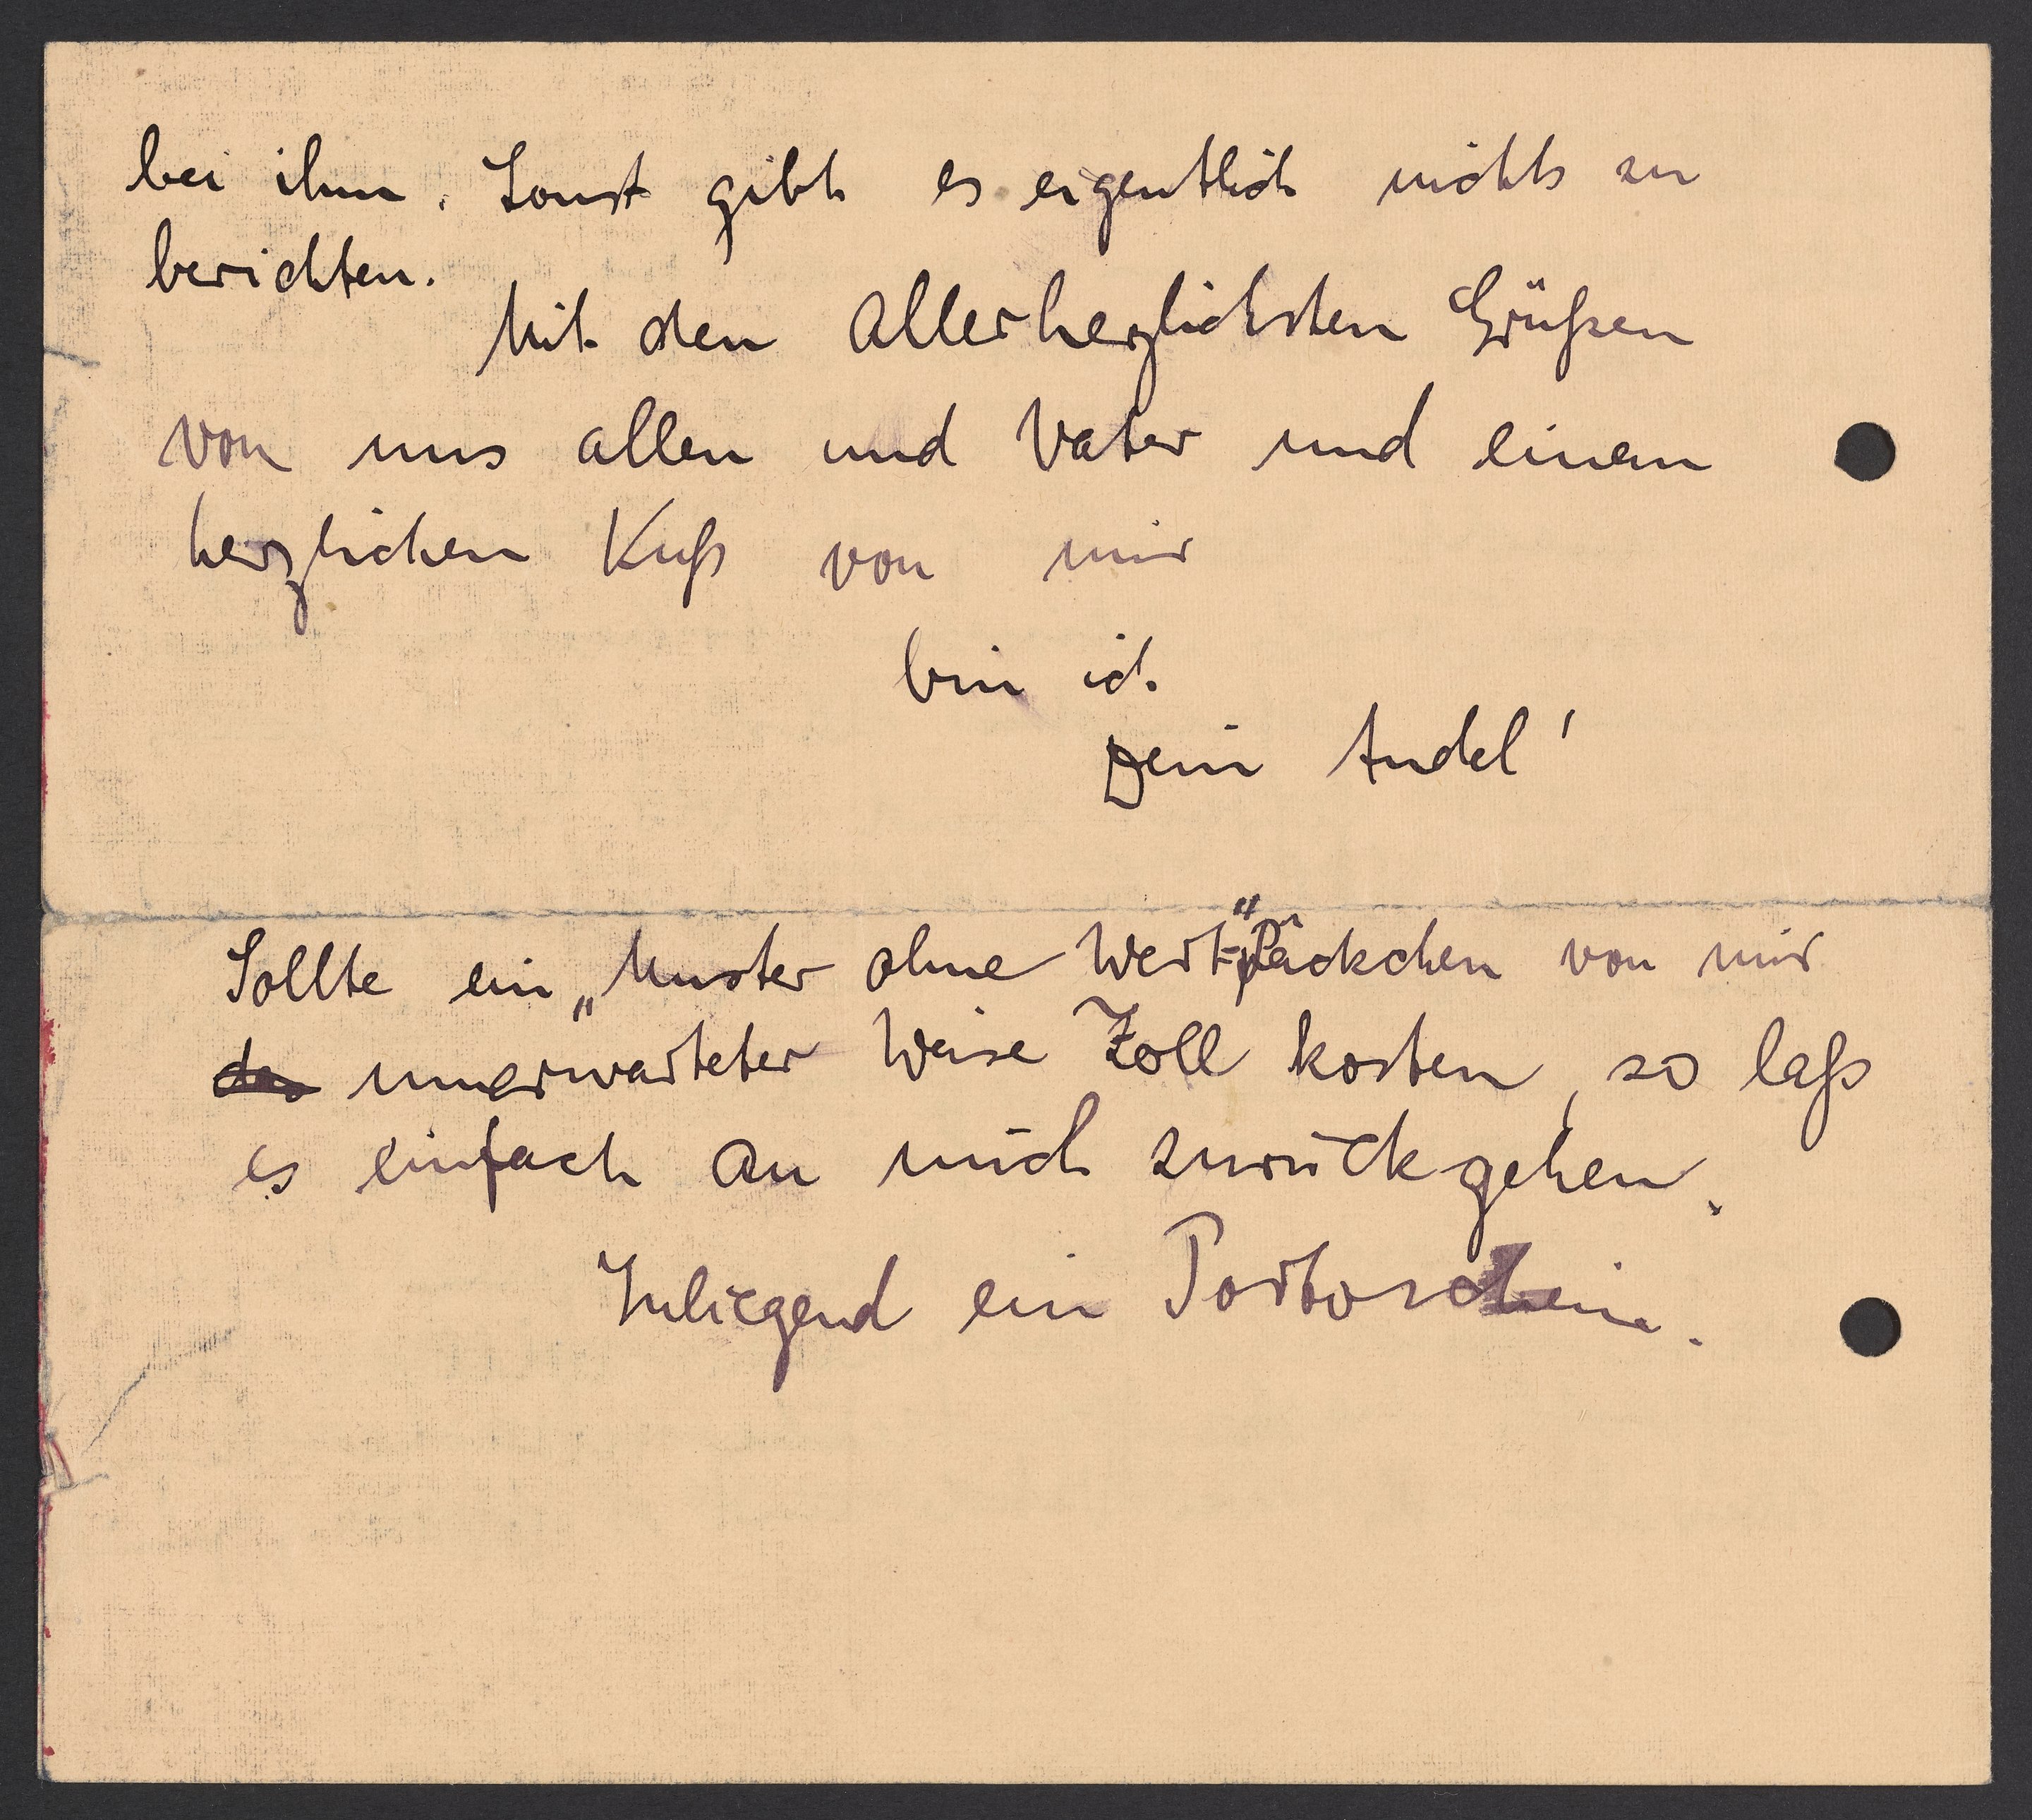 bei ihm. Sonst gibt es eigentlich nichts zu
berichten.
Mit den allerherzlichsten Grüßen
von uns allen und Vater und einem
herzlichen Kuß von mir
bin ich
Dein Andel!
Sollte ein „Muster ohne Wert“-Päckchen von mir
das unerwarteter Weise Zoll kosten, so laß
es einfach an mich zurückgehen.
Inliegend ein Portoschein.